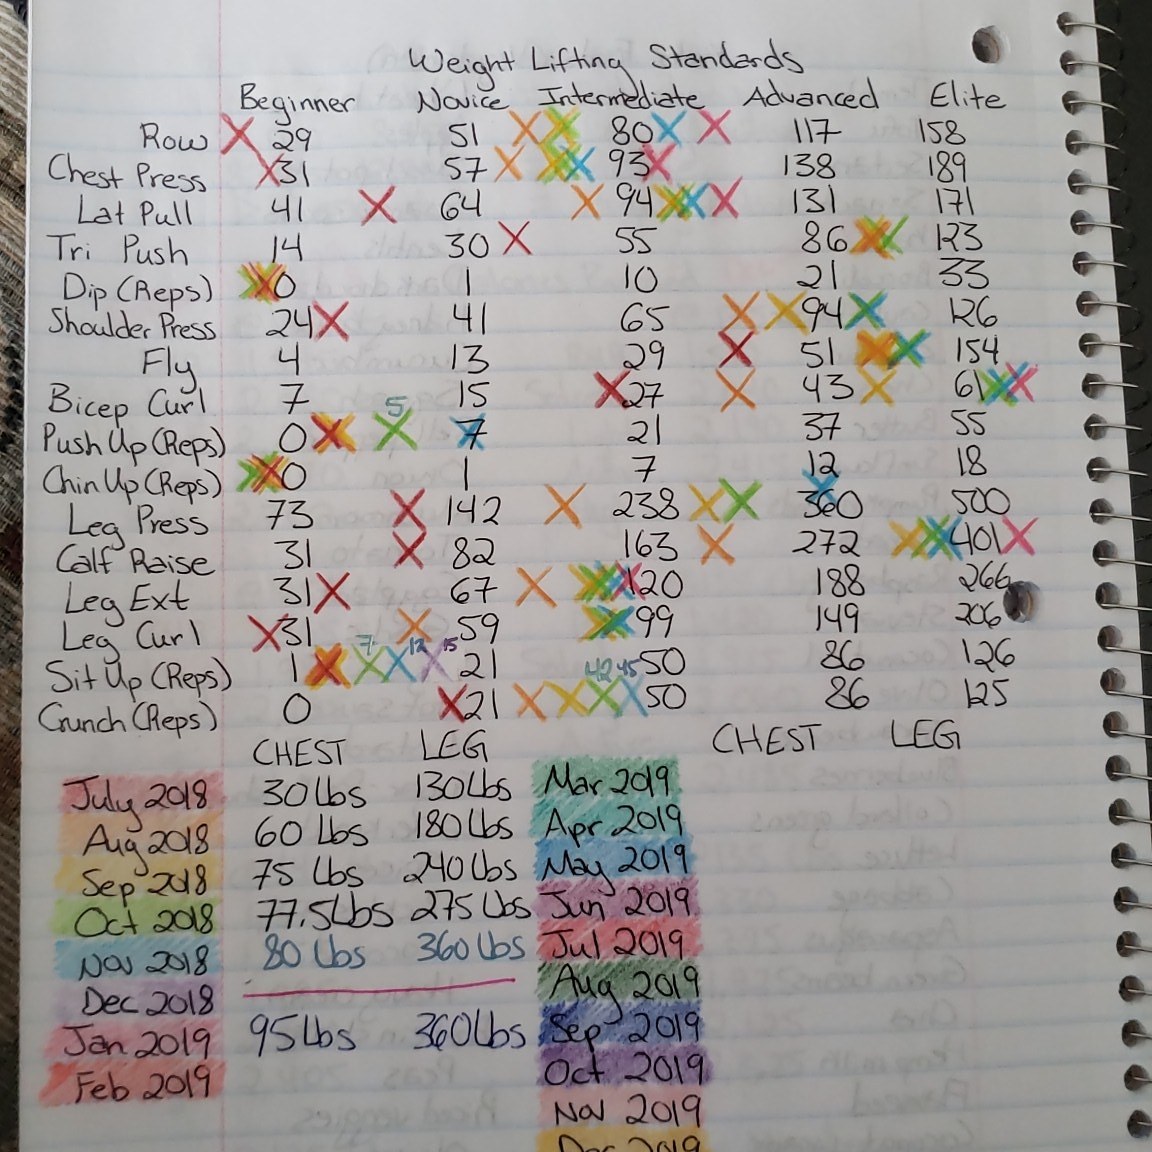 Weight Lifting Standards
Beginner Novice Intermediate Advanced Elite
Row 29 51 80 117 158
Chest Press 31 57 93 138 189
Lat Pull 41 64 94 131 171
Tri Push 14 30 55 86 123
Dip (Reps) 0 1 10 21 33
Shoulder Press 24 41 65 94 126
Fly 4 13 29 51 154
Bicep Curl 7 15 27 43 61
5
Push Up (Reps) 0 7 21 37 55
Chin Up (Reps) 0 1 7 12 18
Leg Press 73 142 238 360 500
Calf Raise 31 82 163 272 401
Leg Ext 31 67 120 188 266
Leg Curl 31 59 99 149 206
7 12 15
Sit Up (Reps) 1 21 42 45 50 86 126
Crunch (Reps) 0 21 50 86 125
CHEST LEG CHEST LEG
July 2018 30 lbs 130 lbs Mar 2019
Aug 2018 60 lbs 180 lbs Apr 2019
Sep 2018 75 lbs 240 lbs May 2019
Oct 2018 77.5 lbs 275 lbs Jun 2019
Nov 2018 80 lbs 360 lbs Jul 2019
Dec 2018 Aug 2019
Jan 2019 95 lbs 360 lbs Sep 2019
Feb 2019 Oct 2019
Nov 2019
Dec 2019